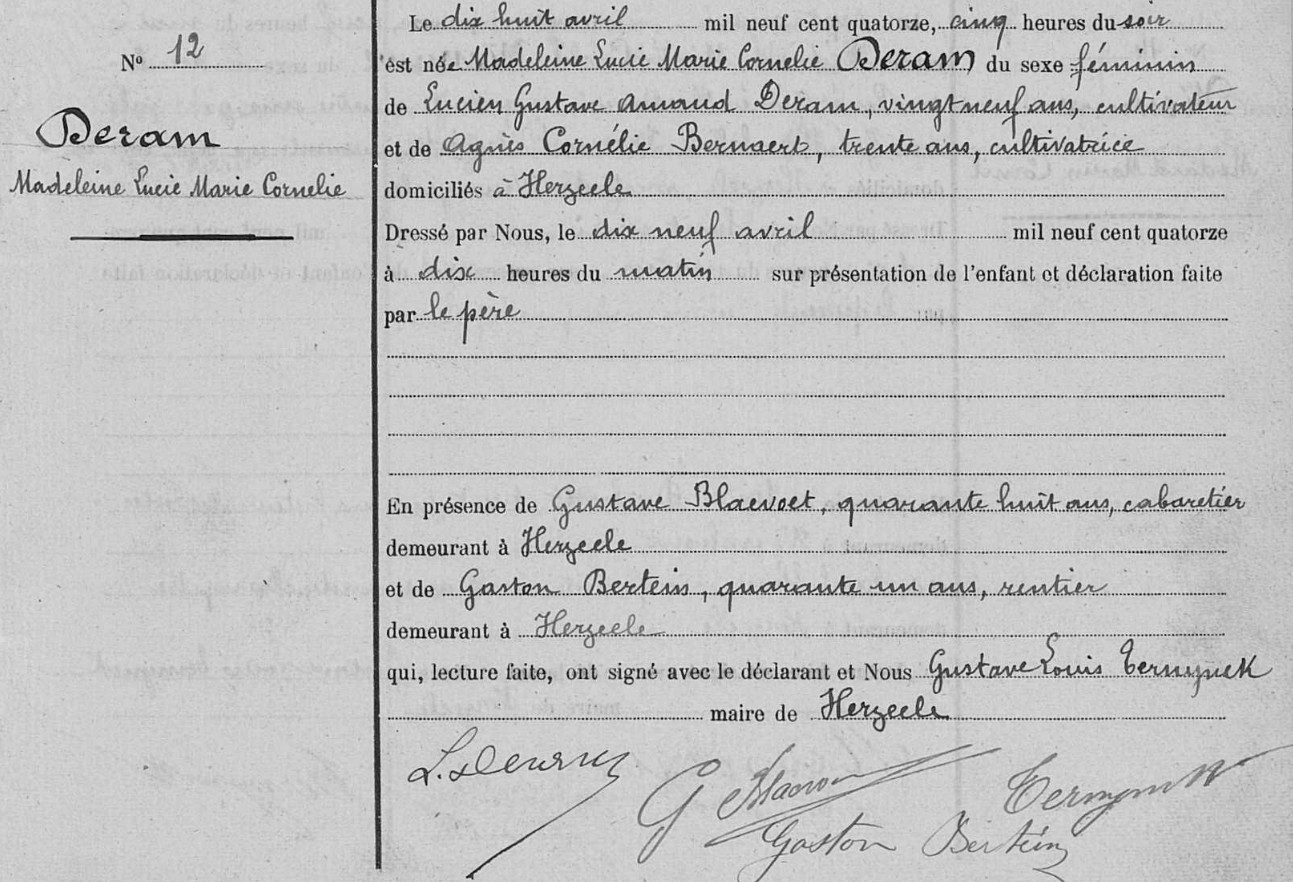 Nº 12
Deram
Madeleine Lucie Marie Cornelie
Le dix huit avril mil neuf cent quatorze, cinq heures du soir
est née Madeleine Lucie Marie Cornelie Deram du sexe féminin
de Lucien Gustave Amaud Deram, vingt neuf ans, cultivateur
et de Agnès Cornélie Bernaert, trente ans, cultivatrice
domiciliés à Herzeele
Dressé par Nous, le dix neuf avril mil neuf cent quatorze
à dix heures du matin sur présentation de l'enfant et déclaration faite
par le père
En présence de Gustave Blaevoet, quarante huit ans, cabaretier
demeurant à Herzeele
et de Gaston Bertein, quarante un ans, rentier
demeurant à Herzeele
qui, lecture faite, ont signé avec le déclarant et Nous Gustave Louis Ternynck
maire de Herzeele
G
Ternynck
Gaston Bertein